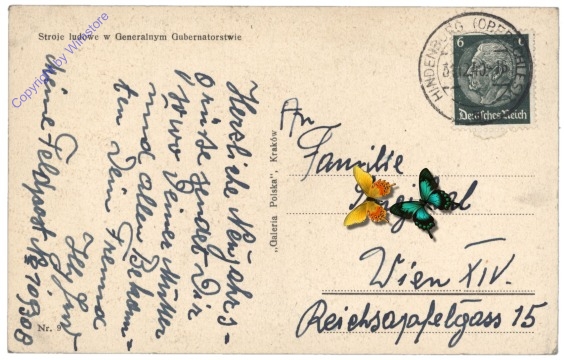 Stroje ludowe w Generalnym Gubernatorstwie
Copyright by Winstore
Herzliche Neujahrs-
grüsse sendet Dir
sowie Deiner Mutter
und allen Bekann-
ten Dein Freund
Meine Feldpost Nr
Nr. 9
„Galeria Polska", Kraków
HINDENBURG (OBERSCHLES)
6
Deutsches Reich
An
Familie
Wien XIV.
Reichsapfelgass 15